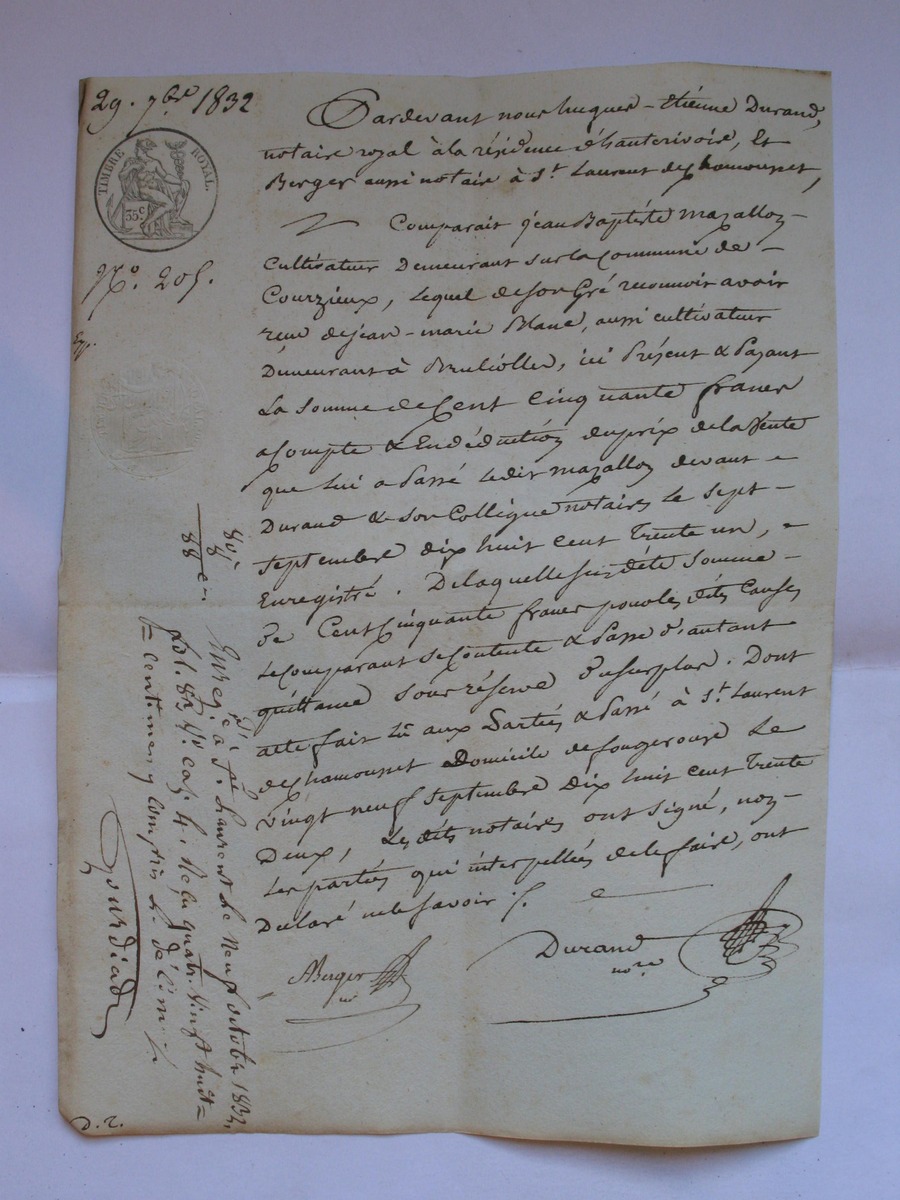 29. 7bre 1832
TIMBRE ROYAL.
35c
No. 205.
Pardevant nous hugues-Etiénne Durand,
notaire royal à la résidence d'hauterivoire, Et
Berger aussi notaire à St. Laurent de Chamousset,
Comparait jean Baptiste Mazallon
Cultivateur Demeurant sur la Commune de
Courzieux, Lequel de son Gré reconnoit avoir
reçu de jean-marie Blanc, aussi cultivateur
Demeurant à Brulliolles, ici Présent & Payant
La Somme de Cent Cinquante francs
acompte & En déduction du prix de la Vente
que lui a Passé Ledit Mazallon devant
Durand & son Collégue notaires Le Sept
Septembre dix huit Cent Trente un,
Enregistré. De laquelle susdéte Somme
De Cent Cinquante francs pour les dits Causes
Le Comparant se Contente & Passe d'autant
quittance sous réserve du surplus. Dont
acte fait Lu aux Parties & Passé à St. Laurent
de Chamousset Domicile de fougerouse Le
Vingt neuf Septembre Dix huit cent Trente
Deux, Les dits notaires ont signé, non
Les parties qui interpellées de le faire, ont
Declaré ne le Savoir ./.
Berger
nre
Durand
nore
80c
8
88 c
Enregé à St. Laurent Le Neuf octobre 1832,
fol. 82 Vo. cas. 4. Reçu quatre vingt huit
Centimes y compris le décime
Gourdiad
D. R.